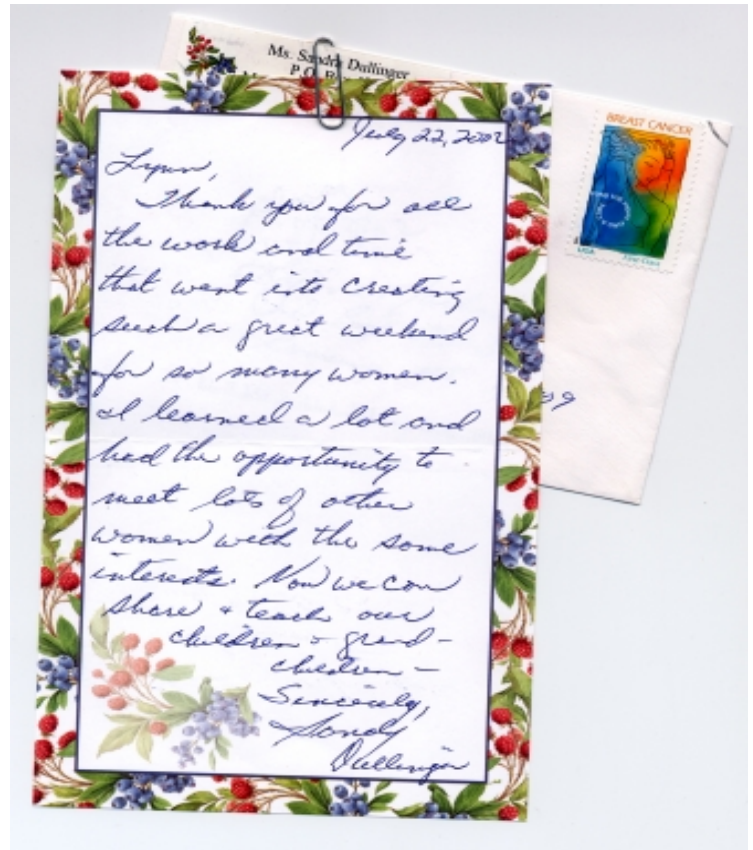 Ms. Sandra Dallinger
P.O. Box
July 22, 2002
Lynn,
Thank you for all
the work and time
that went into creating
such a great weekend
for so many women.
I learned a lot and
had the opportunity to
meet lots of other
women with the same
interests. Now we can
share + teach our
children + grand-
children -
Sincerely,
Sandy
Dallinger
BREAST CANCER
USA
First Class